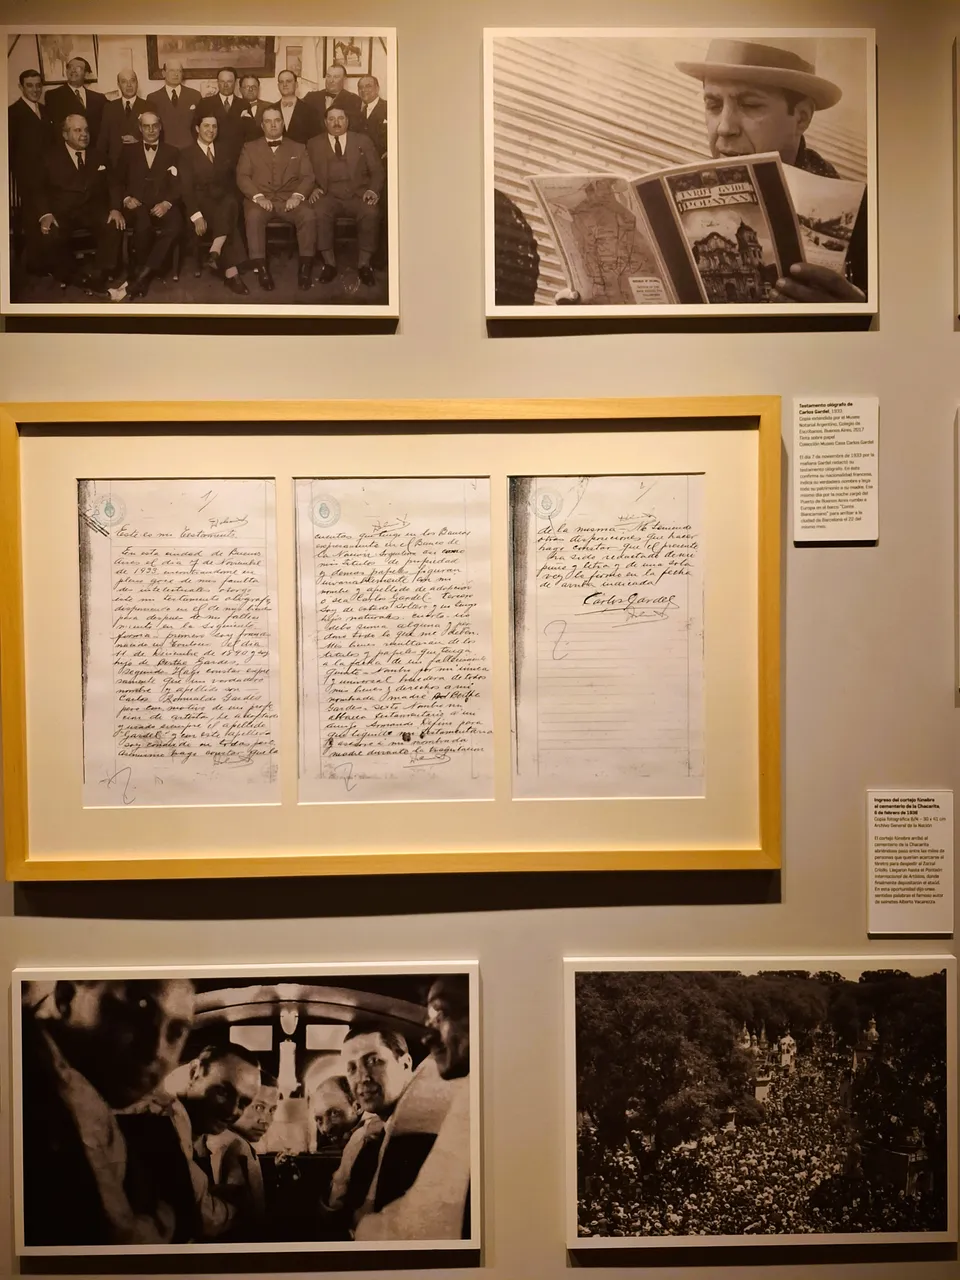 TVRIT GVIDE
POPAYAN
Testamento ológrafo de
Carlos Gardel, 1933
Copia extendida por el Museo
Notarial Argentino, Colegio de
Escribanos, Buenos Aires, 2017
Tinta sobre papel
Colección Museo Casa Carlos Gardel
El día 7 de noviembre de 1933 por la
mañana Gardel redactó su
testamento ológrafo. En éste
confirma su nacionalidad francesa,
indica su verdadero nombre y lega
todo su patrimonio a su madre. Ese
mismo día por la noche zarpó del
Puerto de Buenos Aires rumbo a
Europa en el barco "Conte
Biancamano" para arribar a la
ciudad de Barcelona el 23 del
mismo mes.
1/
Este es mi testamento
En esta ciudad de Buenos
Aires el dia 7 de Noviembre
de 1933, encontrándome en
pleno goce de mis faculta
des intelectuales otorgo
este mi testamento ológrafo
disponiendo en el de mis bienes
para despues de mi falleci
miento en la siguiente
forma: primero: soy francés
nacido en Toulouse el dia
11 de Diciembre de 1890 y soy
hijo de Berthe Gardes.
Segundo: Hago constar expre
samente que mi verdadero
nombre y apellido son
Carlos Romualdo Gardes
pero con motivo de mi profe
sión de artista, he adoptado
y usado siempre el apellido
"Gardel" y con este apellido
soy conocido en todas partes
Asimismo hago constar que las
cuentas que tengo en los Bancos
especialmente en el Banco de
la Nación Argentina así como
mis titulos de propiedad
y demas papeles figuran
invariablemente con mi
nombre y apellido de adopcion
o sea Carlos Gardel. Tercero
soy de estado soltero y no tengo
hijos naturales. cuarto: no
debo suma alguna y per
dono todo lo que me deben.
Mis bienes resultaran de los
titulos y papeles que tenga
a la fecha de mi fallecimiento
Quinto = Nombro por mi única
y universal heredera de todos
mis bienes y derechos a mi
nombrada madre Berthe
Gardes. Sexto Nombro mi
albacea testamentario a mi
amigo Armando Defino para
que liquide mi testamentaria
y asesore a mi nombrada
madre durante la tramitacion
de la misma — No teniendo
otras disposiciones que hacer
hago constar que el presente
ha sido redactado de mi
puño y letra y de una sola
vez, lo firmo en la fecha
de arriba indicada
Carlos Gardel
Ingreso del cortejo fúnebre
al cementerio de la Chacarita,
6 de febrero de 1936
Copia fotográfica B/N – 30 x 41 cm
Archivo General de la Nación
El cortejo fúnebre arribó al
cementerio de la Chacarita
abriéndose paso entre las miles de
personas que querían acercarse al
féretro para despedir al Zorzal
Criollo. Llegaron hasta el Panteón
Internacional de Artistas, donde
finalmente depositaron el ataúd.
En esta oportunidad dijo unas
sentidas palabras el famoso autor
de sainetes Alberto Vacarezza.